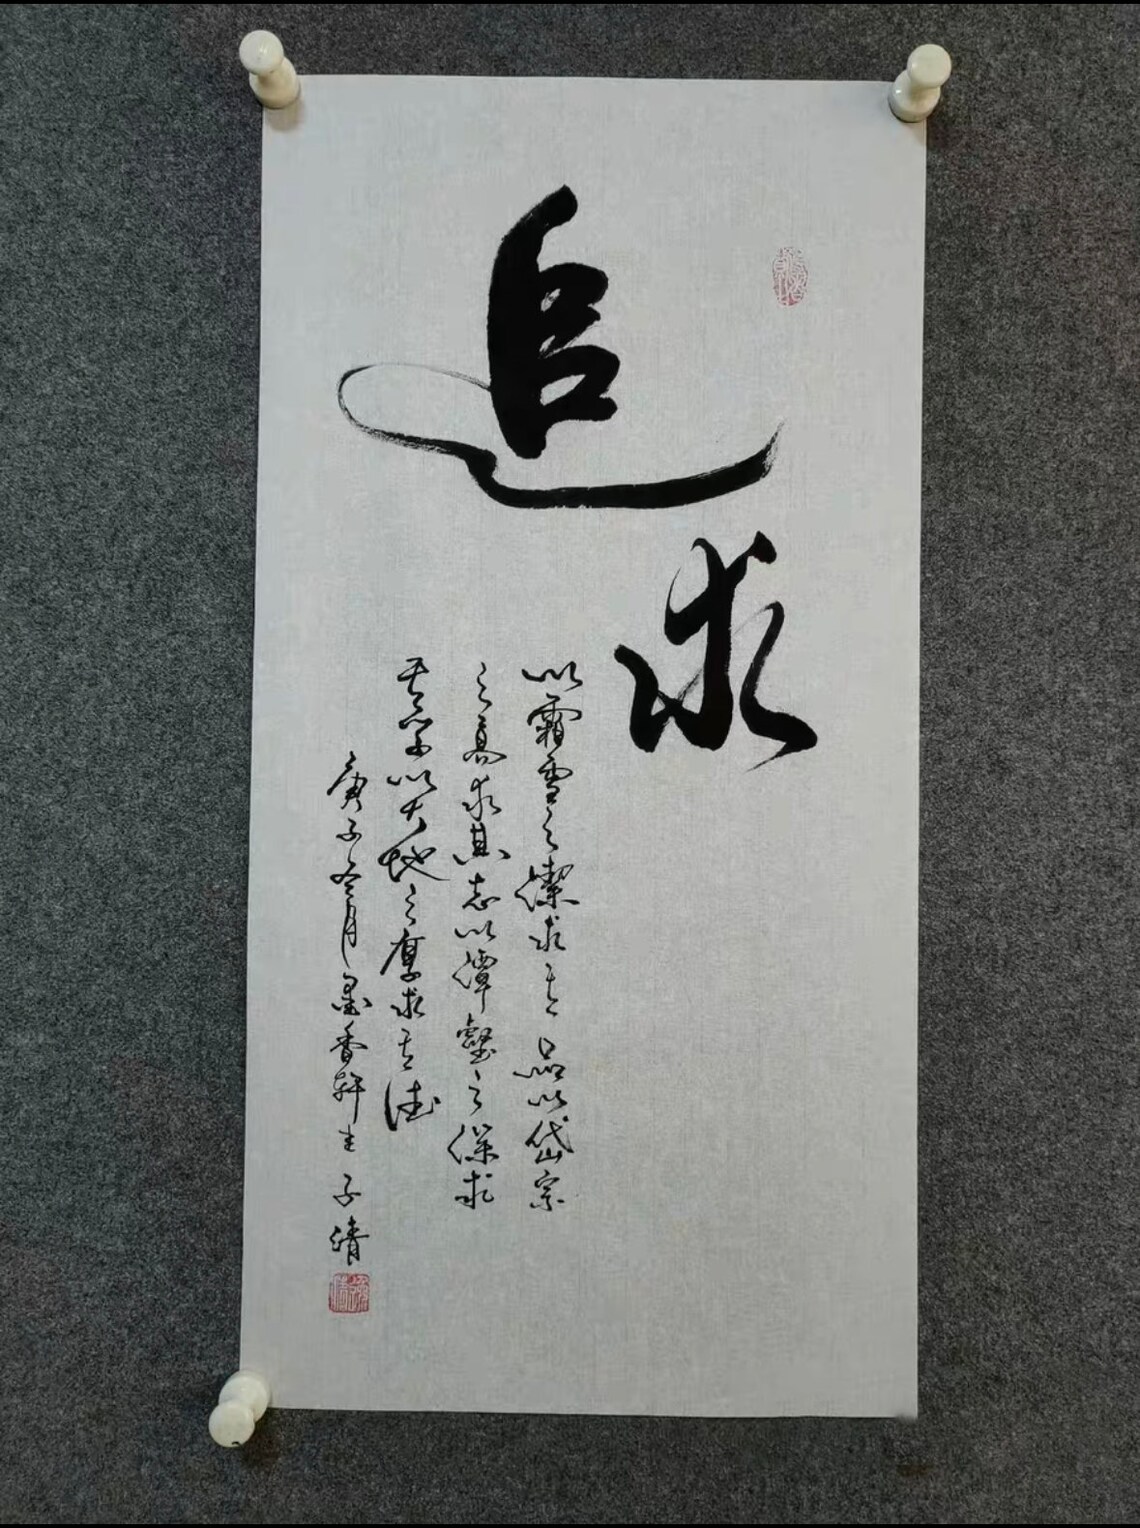 追
求
以霜雪之潔求其品以岱宗
之高求其志以潭壑之深求
其學以大地之厚求其德
庚子冬月墨香軒主子清